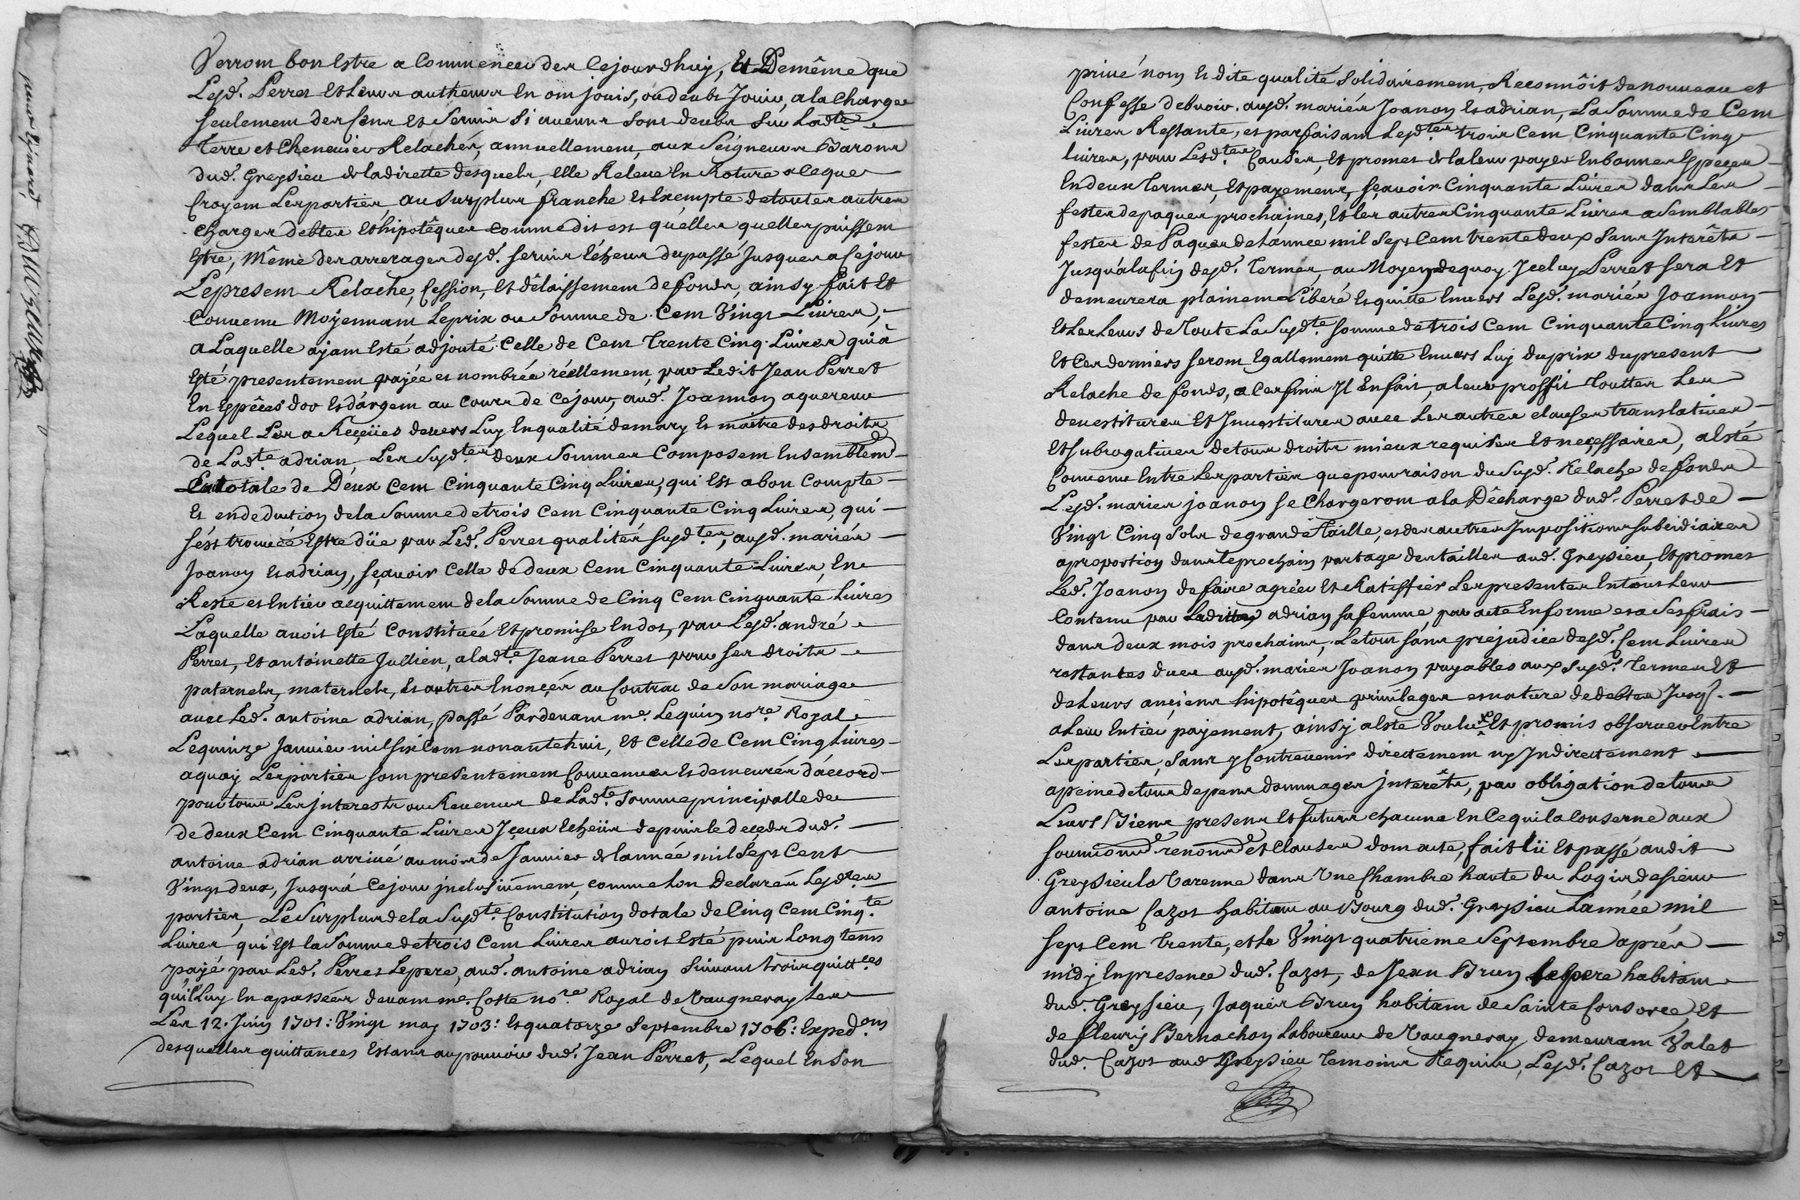 Verrom bon Estre a Commencer des Cejourdhuy, Et De même que
Lesd. Perret Et Leurs autheurs En ont jouis, ou deubt Jouir, a la Charge
seulement des Cens Et Servis si aucuns sont deubs Sur Ladte
terre et Cheneviev Relachés, annuellement, aux Seigneurs Barons
dud. Greysieu de la directe desquels, elle Releve En Roture a Ceque
Croyent Les parties, au surplus franche Et Exempte de toutes autres
Charges debtes Et hipotêques comme dit est quelles quelles puissent
Estre, Même des arrerages desd. servis Echeus du passé Jusques a Cejour
Le present Relache, Cession, Et délaissement de fonds, ainsy fait Et
Convenu Moÿennant Le prix ou Somme de Cent Vingt Livres,
a Laquelle ajant Esté adjouté Celle de Cent trente Cinq Livres qui à
Esté presentement payée et nombrée réellement, par Ledit Jean Perret
En Espêces d'or Et d'argent au Cours de Cejour, aud. Joannon aquereur
Lequel Les a Reçües devers Luy En qualité de mary Et maitre des droits
de Ladte. adrian, Les Susdtes deux Sommes Composent Ensemblem
La totale de Deux Cent Cinquante Cinq Livres, qui Est a bon Compte
Et en deduction de la Somme de trois Cent Cinquante Cinq Livres, qui
s'est trouvée Estre düe par Led. Perret qualités susdtes, ausd. mariés
Joanon Et adrian, sçavoir Celle de deux Cent Cinquante Livres, En
Reste et Entier acquittement de la Somme de Cinq Cent Cinquante Livres
Laquelle avoit Esté Constituée Et promise En dot, par Lesd. andré
Perret, Et antoinette Jullien, a ladte Jeane Perret pour ses droits
paternels, maternels, Et autres Enonçés au Contrat de Son mariage
avec Led. antoine adrian, passé Pardevant me. Lequin nore. Royal
Le quinze Janvier mil six Cent nonante huit, Et Celle de Cent Cinq Livres
aquoy Les parties sont presentement Convenues Et demeurés d'accord
pour tous Les jnterests ou Revenus de Ladte Somme principalle de
de deux Cent Cinquante Livres Jçeux Echeüs depuis le deçeds dud.
antoine adrian arrivé au mois de Janvier de l'année mil Sept Cent
Vingt deux, Jusqu'à Cejour jnclusivement, comme L'on Declaréu Lesdtes
parties, Le Surplus de la Susdte. Constitution dotale de Cinq Cent Cinqte
Livres qui Est la Somme de trois Cent Livres aurois Esté puis Long tems
payé par Led. Perret Le pere, aud. antoine adrian Suivant trois quittces
qu'il Luy En a passées devant me. Coste nore Royal de Vaugneray Les
Les 12. Juin 1701: Vingt may 1703: Et quatorze Septembre 1706: Expedons
desquelles quittances Estant au pouvoir dud. Jean Perret, Lequel En Son
privé nom Et dite qualité Solidairement, Reconnoit de nouveau et
Confesse debvoir, ausd. mariés Joanon Et adrian, La Somme de Cent
Livres Restante, et parfaisant Lesdtes trois Cent Cinquante Cinq
Livres, pour Lesdtes. Causes, Et promet de la leur payer En bonnes Espeçes
En deux termes, Et payements, sçavoir Cinquante Livres dans Les
festes de paques prochaines, Et les autres Cinquante Livres a Semblables
festes de Paques de L'année mil Sept Cent trente deux Sans Interêts
Jusqu'a la fin desd. termes, au Moyen dequoy Jceluy Perret sera Et
demeurera plainem Liberé Et quitte Envers Lesd. mariés Joannon
Et Les Leurs de toute La Susdte Somme de trois Cent Cinquante Cinq Livres
Et Ces derniers seront Egallement quitte Envers Luy du prix du present
Relache de fonds, a Ces fins Jl En fait, a leur proffit touttes Les
devestitures Et Jnvestitures avec Les autres clauses translatives
Et subrogatives de tous droits mieux requises Et neçessaires, a Esté
Convenu Entre Les parties que pour raison du Susd. Relache de fonds
Lesd. mariés joanon se Chargeront a la Décharge dud. Perret de
Vingt Cinq Sols de grande taille, et des autres Impositions subsidiaires
a proportion dans le prochain partage des tailles aud. Greysieu, Et promet
Led. Joanon de faire agréer Et Ratiffier Les presentes En tout Leur
Contenu par Laditte adrian sa femme, par acte En forme et a Ses frais
dans deux mois prochains, Le tout sans prejudice desd. Cent Livres
restantes dues ausd. mariés Joanon payables aux Susd. termes Et
de Leurs anciens hipotêques privileges et nature de debtes Jusq.
a Leur Entier payement, ainsy a Esté Voulu Et promis observer Entre
Les parties, Sans y Contrevenir directement ny Jndirectement
a peine de tous depens dommages jnterêts, par obligation de tous
Leurs Biens presens Et futurs chacune En Ce qui la Conserne aux
soumions. renons. et Clauses dont acte, fait Lü Et passé audit
Greysieu la Varenne dans Une Chambre haute du Logis de sieur
antoine Cazot habitant au Bourg dud. Greysieu L'année mil
sept Cent trente, et le Vingt quatrieme Septembre aprés
midj En presence dud. Cazot, de Jean Brun Le pere habitant
dud. Greysieu, Jaques Brun habitant de Sainte Consorce, Et
de fleury Bernachon Laboureur de Vaugneray demeurant Valet
dud. Cazot aud Greysieu temoins Requis, Lesd. Cazot Et